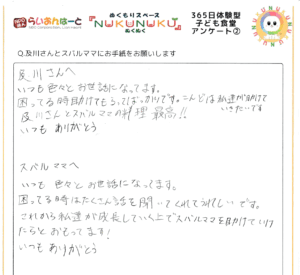 らいおんはーと
ぬくもりスペース
NUKUNUKU
ぬくぬく
365日体験型
子ども食堂
アンケート②
Q.及川さんとスバルママにお手紙をお願いします
及川さんへ
いつも色々とお世話になってます。
困ってる時助けてもらってばっかりです。こんどは私達が助けて
いきたいです
及川さんとスバルママの料理最高!!
いつもありがとう
スバルママへ
いつも色々とお世話になってます。
困ってる時はたくさん話を聞いてくれてうれしいです。
これから私達が成長していく上でスバルママを助けていけ
たらとおもってます!
いつもありがとう